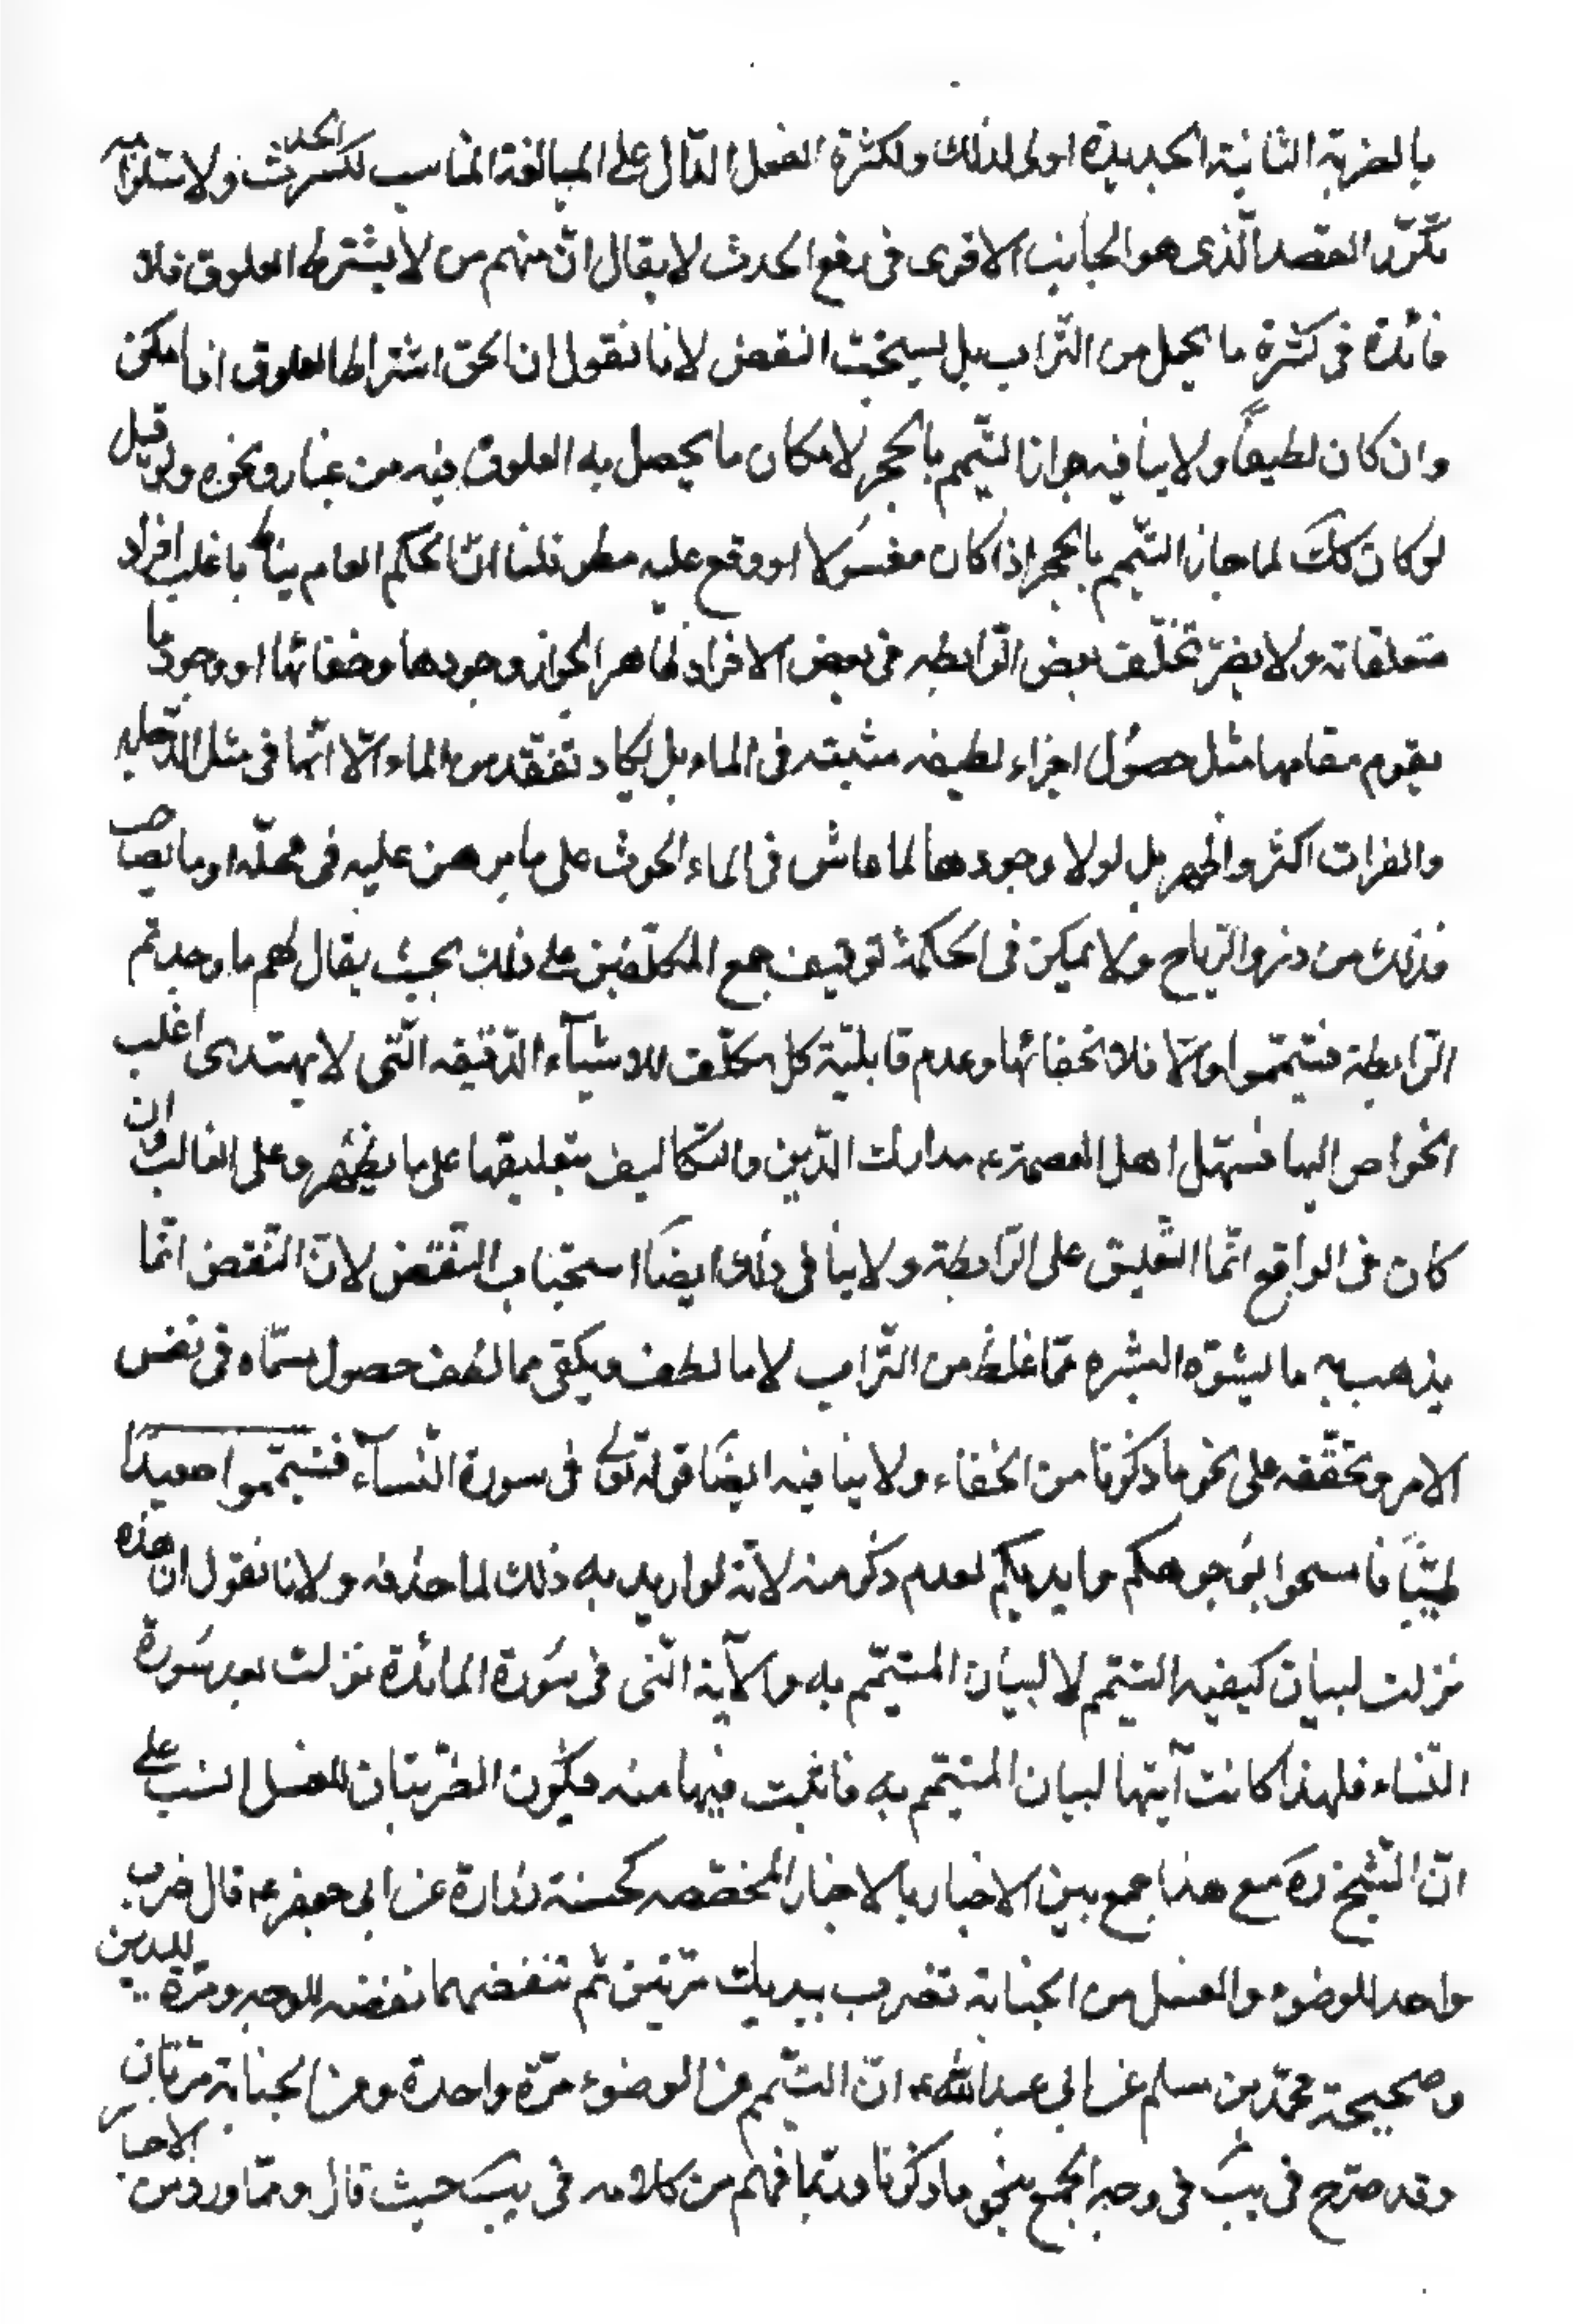 بالضربة الثانية الجديدة اولى لذلك ولكثرة الفعل الدّال على المبالغة المناسب لكسر الحدث ولاستلزامه
تكرّر القصد الّذى هو الجانب الاقوى فى رفع الحدث لا يقال انّ منهم من لا يشترط العلوق فلا
فائدة فى كثرة ما يحمل من التّراب بل يستحبّ النفض لانا نقول ان الحق اشتراط العلوق اذا امكن
وان كان لطيفاً ولا ينافيه جواز التيمّم بالحجر لامكان ما يحصل به العلوق فيه من غبار ونحوه ولو قيل
لو كان كلك لما جاز التيمّم بالحجر اذا كان مغسُولا او وقع عليه مطر قلنا انّ الحكم العام يناط باغلب افراد
متعلقاته ولا يضرّ تخلّف بعض الرّابطه فى بعض الافراد ظاهرا لجواز وجودها وخفائها او وجود ما
يقوم مقامها مثل حصُول اجزاء لطيفه منبثه فى الماء بل لا يكاد تفقد من الماء الّا انّها فى مثل الدّجله
والفرات اكثر واظهر بل لولا وجودها لما عاش فى الماء الحوت على ما برهن عليه فى محلّه او ما يصاحب
ذلك من ذرو الرّياح ولا يمكن فى الحكمة توقيف جمع المكلّفين على ذلك بحيث يقال لهم ما وجدتم
الرّابطة فتيمّموا والّا فلا لخفائها وعدم قابليّة كل مكلّف للاشيآء الدّقيقه الّتى لا يهتدى اغلب
الخواص اليها فسهّل اهل العصمة ع مدارك الدّين والتكاليف بتعليقها على ما يظهر وعلى الغالب وان
كان فى الواقع انّما التّعليق على الرّابطة ولا ينافى ذلك ايضاً استحباب النّفض لانّ النّفض انّما
يذهب به ما يشوّه البشره ممّا غلظ من التّراب لا ما لطف ويكفى مما لطف حصول مسمّاه فى نفس
الامر وتحقّقه على نحو ما ذكرنا من الخفاء ولا ينافيه ايضًا قوله تعالى فى سورة النّسآء فتيمّموا صعيدًا
طيّبًا فامسحوا بوُجوهكم وايديكم لعدم ذكر منه لانّه لو اريد به ذلك لما حذفه ولانا نقول ان هذه
نزلت لبيان كيفيه التيمّم لا لبيان المتيمّم به والآية الّتى فى سُورة المائدة نزلت بعد سُورة
النّساء فلهذا كانت آيتها لبيان المتيمّم به فاثبت فيها منه فيكون الضّربتان للغسل انسب على
انّ الشّيخ ره مع هذا جمع بين الاخبار بالاخبار المخصّصه كحسنة زرارة عن ابى جعفر ع قال ضرب
واحد للوضوء والغسل من الجنابة تضرب بيديك مرّتين ثم تنفضهما نفضه للوجه ومرّة لليدين
وصحيحة محمّد بن مسلم عن ابى عبدالله ع انّ التيمّم من الوضوء مرّة واحدة ومن الجنابة مرّتان
وقد صرّح فى يب فى وجه الجمع بنحو ما ذكرنا وربّما فهم من كلامه فى يب حيث قال وممّا ورد من الاخبار